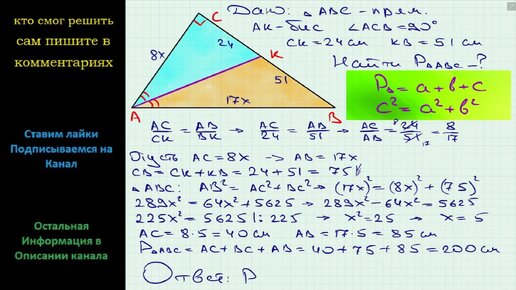 кто смог решить
сам пишите в
комментариях
Ставим лайки
Подписываемся на
Канал
Остальная
Информация в
Описании канала
C
24
8x
K
51
17x
A
B
Дано: △ABC - прям.
AK - бис ∠ACB = 90°
CK = 24 см KB = 51 см
Найти P△ABC - ?
P△ = a + b + c
c² = a² + b²
AC/CK = AB/BK → AC/24 = AB/51 → AC/AB = 24/51 = 8/17
Пусть AC = 8x → AB = 17x
CB = CK + KB = 24 + 51 = 75
△ABC: AB² = AC² + BC² → (17x)² = (8x)² + (75)²
289x² = 64x² + 5625 → 289x² - 64x² = 5625
225x² = 5625 |: 225 → x² = 25 → x = 5
AC = 8·5 = 40 см AB = 17·5 = 85 см
P△ABC = AC + BC + AB = 40 + 75 + 85 = 200 см
Ответ: P